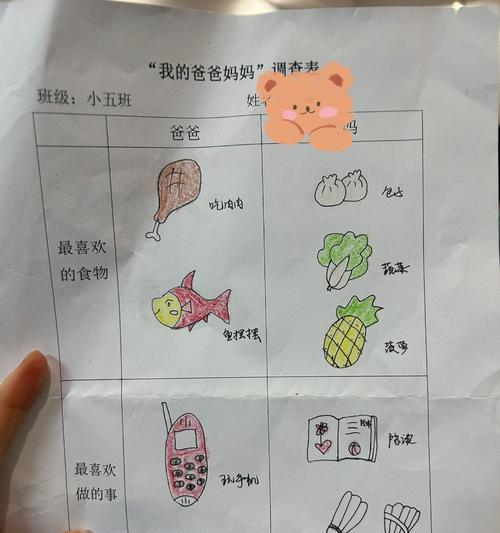 “我的爸爸妈妈”调查表
班级：小五班
姓
爸爸
妈
最喜欢
的食物
吃肉肉
包子
蔬菜
鱼摆摆
菠萝
最喜欢
做的事
玩手机
陪读